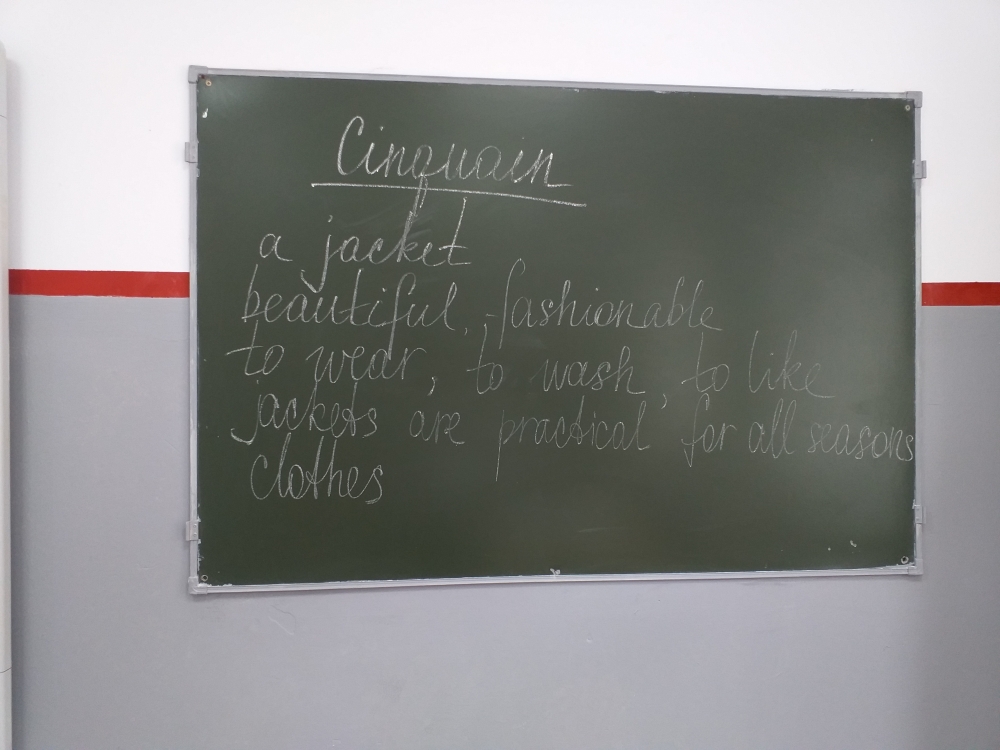 Cinquain
a jacket
beautiful, fashionable
to wear, to wash, to like
jackets are practical for all seasons
clothes